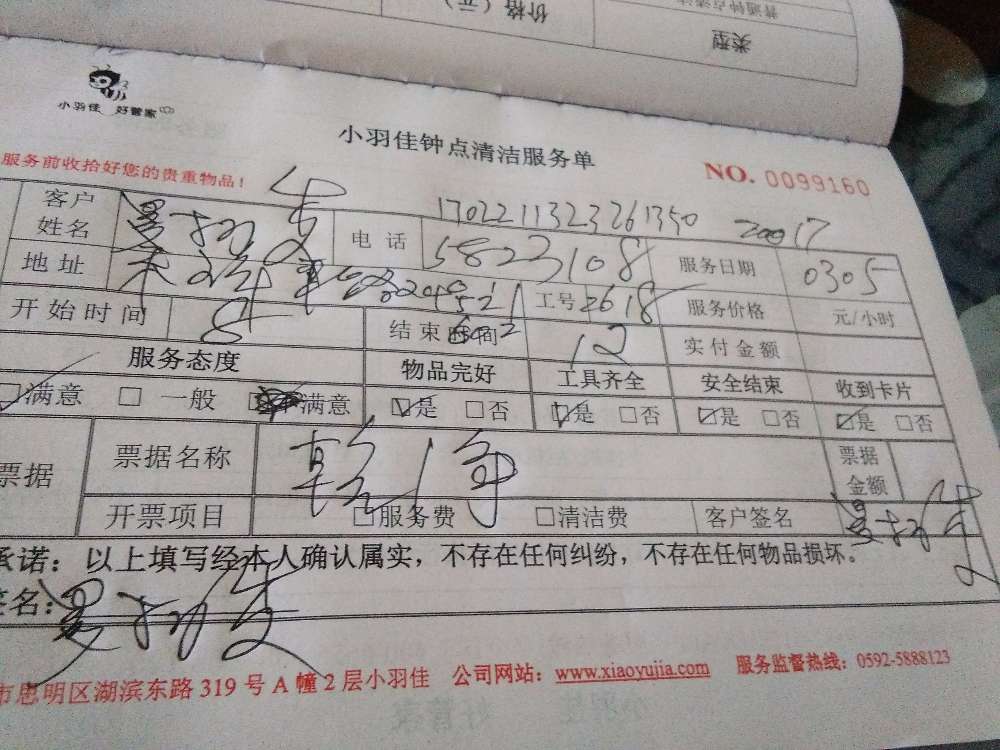 价格（元）
普通钟点清洁
类型
小羽佳 好管家
小羽佳钟点清洁服务单
服务前收拾好您的贵重物品！
NO. 0099160
1702211323261350 2017
客户姓名 电话 5823108 服务日期 0305
地址 工号 2618 服务价格 元/小时
开始时间 8 结束时间 12 实付金额
服务态度 物品完好 工具齐全 安全结束 收到卡片
☑满意 □一般 满意 ☑是 □否 ☑是 □否 ☑是 □否 ☑是 □否
票据 票据名称 票据金额
开票项目 □服务费 □清洁费 客户签名
承诺：以上填写经本人确认属实，不存在任何纠纷，不存在任何物品损坏。
签名：
市思明区湖滨东路319号A幢2层小羽佳 公司网站：www.xiaoyujia.com 服务监督热线：0592-5888123